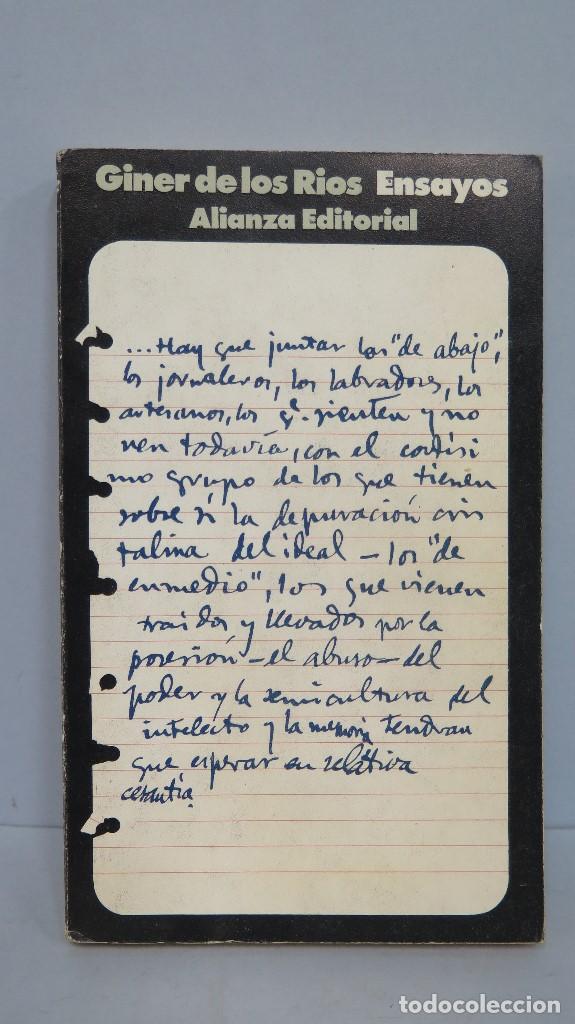 Giner de los Rios Ensayos
Alianza Editorial
...Hay que juntar los "de abajo",
los jornaleros, los labradores, los
artesanos, los q.e sienten y no
ven todavía, con el cortísi
mo grupo de los que tienen
sobre sí la depuración cris
talina del ideal — los "de
enmedio", los que vienen
traidos y llevados por la
posesión — el abuso — del
poder y la semicultura del
intelecto y la memoria tendran
que esperar en relativa
cesantía.
todocoleccion
todocoleccion.net